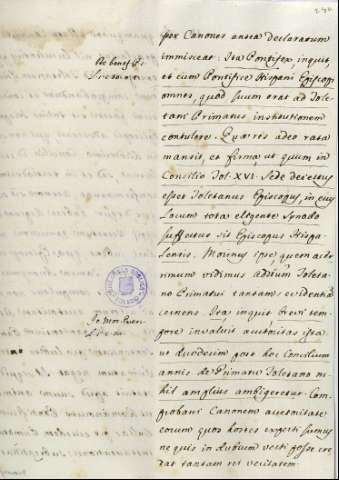 240
per Canones antea declaratum
immisceat: Ita Pontifex, inquit,
et cum Pontifice Hispani Episcopi
omnes, quod suum erat ad Tole
tani Primatus institutionem
contulere. Quæ res adeo rata
mansit, et firma, ut quum in
Concilio Tol. XVI. Sede dejectus
esset Toletanus Episcopus, in ejus
Locum tota eligente Synodo
suffectus sit Episcopus Hispa
lensis. Morinus ipse, quem acer
rimum vidimus
Primatui tantam evidentia
cernens. Ita inquit brevi tem
pore invaluit auctoritas ista
ut duodecim post hoc Concilium
annis de Primatu Toletano ni
hil amplius ambigeretur. Com
probant Canonem auctoritate
eorum quos hostes experti sumus
ne quis in dubium verti posse cre
dat tantam rei veritatem.
De benef.